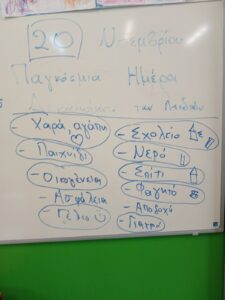 20 Νοεμβρίου
Παγκόσμια Ημέρα
των Παιδιών
- Χαρά, αγάπη
- Παιχνίδι
- Οικογένεια
- Ασφάλεια
- Γέλιο
- Σχολείο
- Νερό
- Σπίτι
- Φαγητό
- Αποδοχή
- Γιατρό